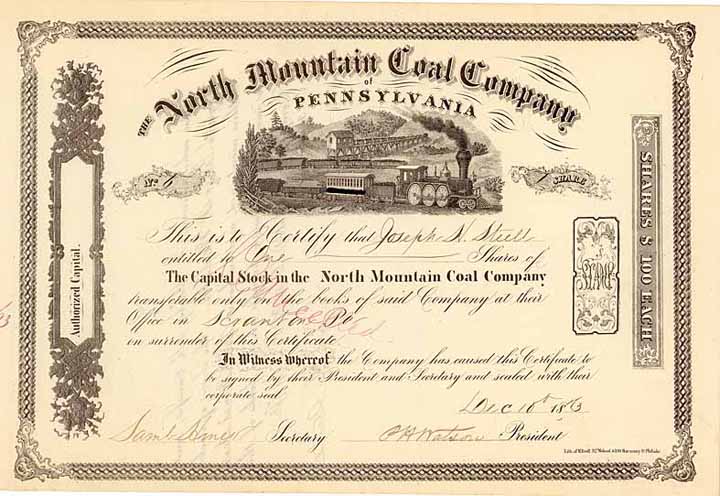 THE North Mountain Coal Company
of
PENNSYLVANIA
No. 6
1 SHARE
This is to Certify that Joseph H. Steell
entitled to One Shares of
The Capital Stock in the North Mountain Coal Company
transferable only on the books of said Company at their
Office in Scranton Pa
on surrender of this Certificate.
In Witness Whereof the Company has caused this Certificate to
be signed by their President and Secretary and sealed with their
corporate seal
Dec 10th
Secretary P H Watson President
Authorized Capital.
SHARES $ 100 EACH